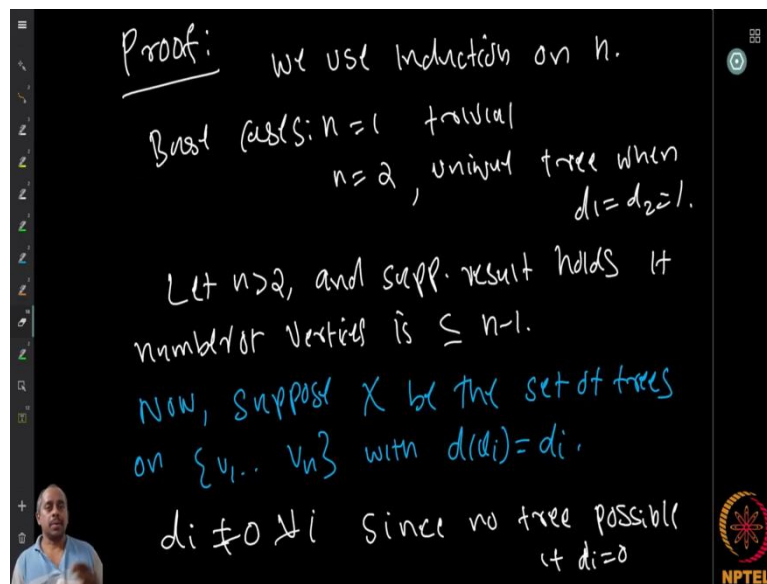 Proof: we use Induction on n.
Base cases: n=1 trivial
n=2, unique tree when
d1=d2=1.
Let n>2, and supp. result holds if
number of vertices is ≤ n-1.
Now, suppose X be the set of trees
on {v1... vn} with d(vi)=di.
di ≠0 ∀i since no tree possible
if di=0
NPTEL